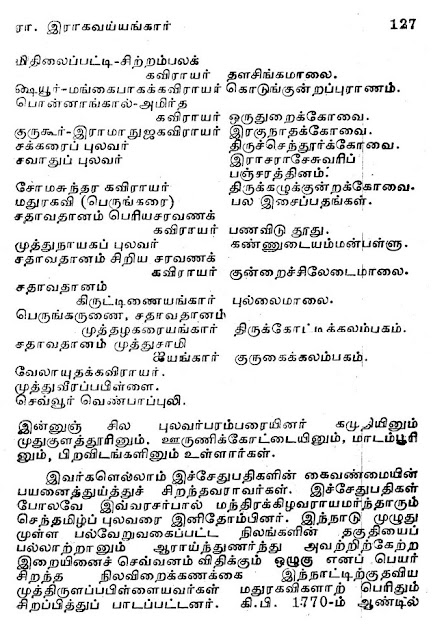 ரா. இராகவய்யங்கார் 127
மிதிலைப்பட்டி-சிற்றம்பலக்
கவிராயர் தளசிங்கமாலை.
ஷையூர்-மங்கைபாகக்கவிராயர் கொடுங்குன்றப்புராணம்.
பொன்னாங்கால்-அமிர்த
கவிராயர் ஒருதுறைக்கோவை.
குருகூர்-இராமாநுஜகவிராயர் இரகுநாதக்கோவை.
சக்கரைப் புலவர் திருச்செந்தூர்க்கோவை.
சவாதுப் புலவர் இராசராசேசுவரிப்
பஞ்சரத்தினம்.
சோமசுந்தர கவிராயர் திருக்கழுக்குன்றக்கோவை.
மதுரகவி (பெருங்கரை) பல இசைப்பதங்கள்.
சதாவதானம் பெரியசரவணக்
கவிராயர் பணவிடு தூது.
முத்துநாயகப் புலவர் கண்ணுடையம்மன்பள்ளு.
சதாவதானம் சிறிய சரவணக்
கவிராயர் குன்றைச்சிலேடைமாலை.
சதாவதானம்
கிருட்டிணையங்கார் புல்லைமாலை.
பெருங்கருணை, சதாவதானம்
முத்தழகரையங்கார் திருக்கோட்டிக்கலம்பகம்.
சதாவதானம் முத்துசாமி
ஐயங்கார் குருகைக்கலம்பகம்.
வேலாயுதக்கவிராயர்.
முத்துவீரப்பபிள்ளை.
செவ்வூர் வெண்பாப்புலி.
இன்னுஞ் சில புலவர்பரம்பரையினர் கமுதியினும்
முதுகுளத்தூரினும். ஊருணிக்கோட்டையினும், மாடம்பூரி
னும், பிறவிடங்களினும் உள்ளார்கள்.
இவர்களெல்லாம் இச்சேதுபதிகளின் கைவண்மையின்
பயனைத்துய்த்துச் சிறந்தவராவர்கள். இச்சேதுபதிகள்
போலவே இவ்வரசர்பால் மந்திரக்கிழவராயமர்ந்தாரும்
செந்தமிழ்ப் புலவரை இனிதோம்பினர். இந்நாடு முழுது
முள்ள பல்வேறுவகைப்பட்ட நிலங்களின் தகுதியைப்
பல்லாற்றானும் ஆராய்ந்துணர்ந்து அவற்றிற்கேற்ற
இறையினைச் செவ்வனம் விதிக்கும் ஒழுகு எனப் பெயர்
சிறந்த நிலவிறைக்கணக்கை இந்நாட்டிற்குதவிய
முத்திருளப்பபிள்ளையவர்கள் மதுரகவிகளாற் பெரிதும்
சிறப்பித்துப் பாடப்பட்டனர். கி.பி. 1770-ம் ஆண்டில்